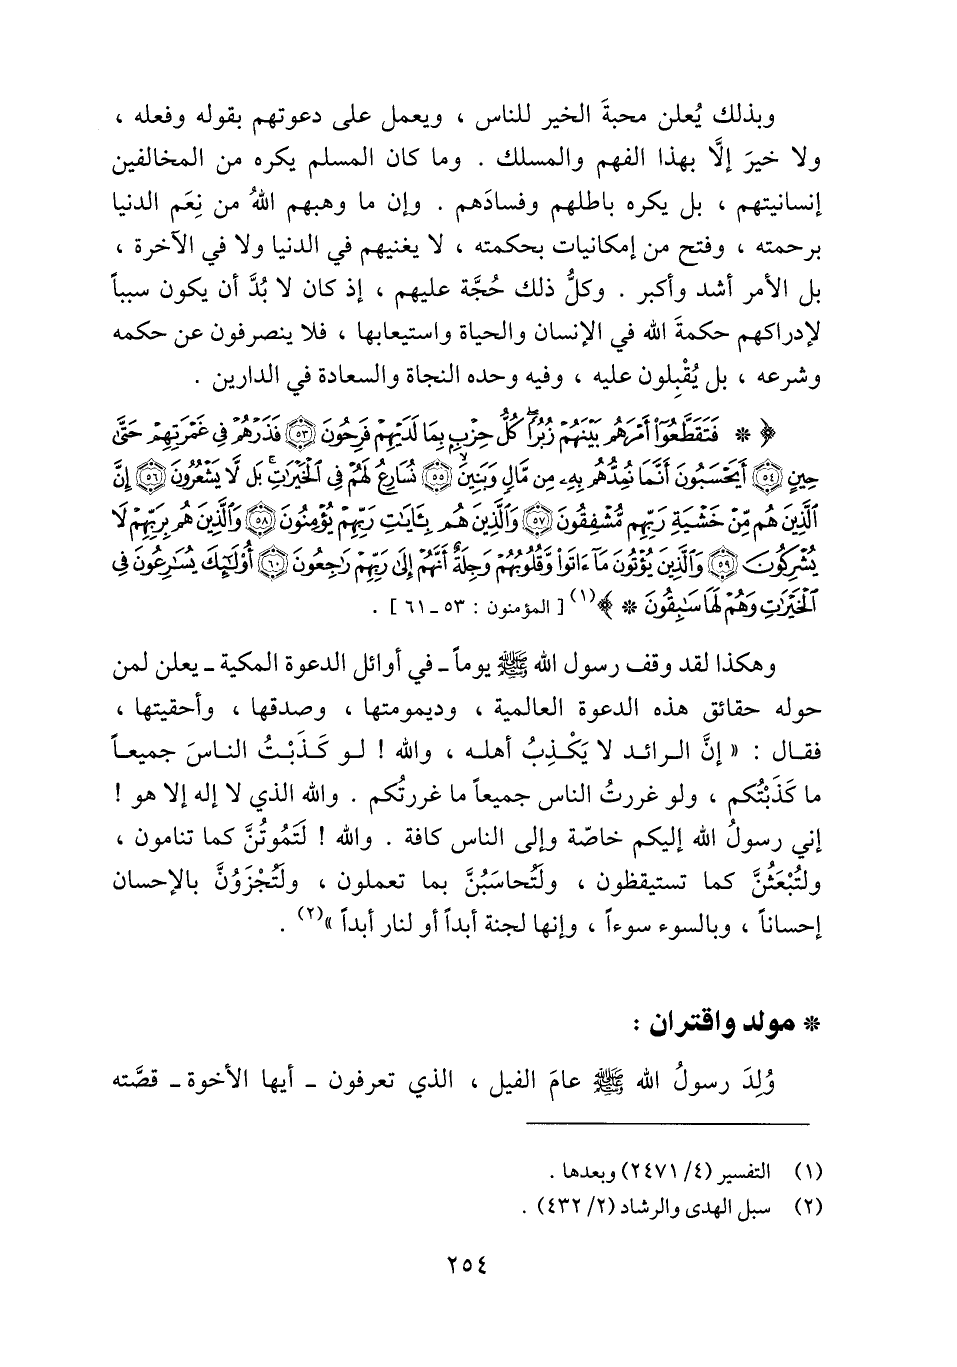 وبذلك يُعلن محبةَ الخير للناس ، ويعمل على دعوتهم بقوله وفعله ،
ولا خيرَ إلَّا بهذا الفهم والمسلك . وما كان المسلم يكره من المخالفين
إنسانيتهم ، بل يكره باطلهم وفسادَهم . وإن ما وهبهم اللهُ من نِعَم الدنيا
برحمته ، وفتح من إمكانيات بحكمته ، لا يغنيهم في الدنيا ولا في الآخرة ،
بل الأمر أشد وأكبر . وكلُّ ذلك حُجَّة عليهم ، إذ كان لا بُدَّ أن يكون سبباً
لإدراكهم حكمةَ الله في الإنسان والحياة واستيعابها ، فلا ينصرفون عن حكمه
وشرعه ، بل يُقْبِلون عليه ، وفيه وحده النجاة والسعادة في الدارين .
﴿ * فَتَقَطَّعُوٓاْ أَمْرَهُم بَيْنَهُمْ زُبُرًاۖ كُلُّ حِزْبٍۭ بِمَا لَدَيْهِمْ فَرِحُونَ ۝٥٣ فَذَرْهُمْ فِي غَمْرَتِهِمْ حَتَّىٰ
حِينٍ ۝٥٤ أَيَحْسَبُونَ أَنَّمَا نُمِدُّهُم بِهِۦ مِن مَّالٍ وَبَنِينَۙ ۝٥٥ نُسَارِعُ لَهُمْ فِي ٱلْخَيْرَٰتِۚ بَل لَّا يَشْعُرُونَ ۝٥٦ إِنَّ
ٱلَّذِينَ هُم مِّنْ خَشْيَةِ رَبِّهِم مُّشْفِقُونَ ۝٥٧ وَٱلَّذِينَ هُم بِـَٔايَٰتِ رَبِّهِمْ يُؤْمِنُونَ ۝٥٨ وَٱلَّذِينَ هُم بِرَبِّهِمْ لَا
يُشْرِكُونَ ۝٥٩ وَٱلَّذِينَ يُؤْتُونَ مَآ ءَاتَواْ وَّقُلُوبُهُمْ وَجِلَةٌ أَنَّهُمْ إِلَىٰ رَبِّهِمْ رَٰجِعُونَ ۝٦٠ أُوْلَٰٓئِكَ يُسَٰرِعُونَ فِي
ٱلْخَيْرَٰتِ وَهُمْ لَهَا سَٰبِقُونَ * ﴾(١) [ المؤمنون : ٥٣ ـ ٦١ ] .
وهكذا لقد وقف رسول الله ﷺ يوماً ـ في أوائل الدعوة المكية ـ يعلن لمن
حوله حقائق هذه الدعوة العالمية ، وديمومتها ، وصدقها ، وأحقيتها ،
فقال : « إنَّ الرائد لا يَكْذِبُ أهله ، والله ! لو كَذَبْتُ الناسَ جميعاً
ما كَذَبْتُكم ، ولو غررتُ الناس جميعاً ما غررتُكم . والله الذي لا إله إلا هو !
إني رسولُ الله إليكم خاصّة وإلى الناس كافة . والله ! لَتَمُوتُنَّ كما تنامون ،
ولتُبْعَثُنَّ كما تستيقظون ، ولَتُحاسَبُنَّ بما تعملون ، ولَتُجْزَوُنَّ بالإحسان
إحساناً ، وبالسوء سوءاً ، وإنها لجنة أبداً أو لنار أبداً »(٢) .
* مولد واقتران :
وُلِدَ رسولُ الله ﷺ عامَ الفيل ، الذي تعرفون ـ أيها الأخوة ـ قصَّته
(١) التفسير (٤/ ٢٤٧١) وبعدها .
(٢) سبل الهدى والرشاد (٢/ ٤٣٢) .
٢٥٤